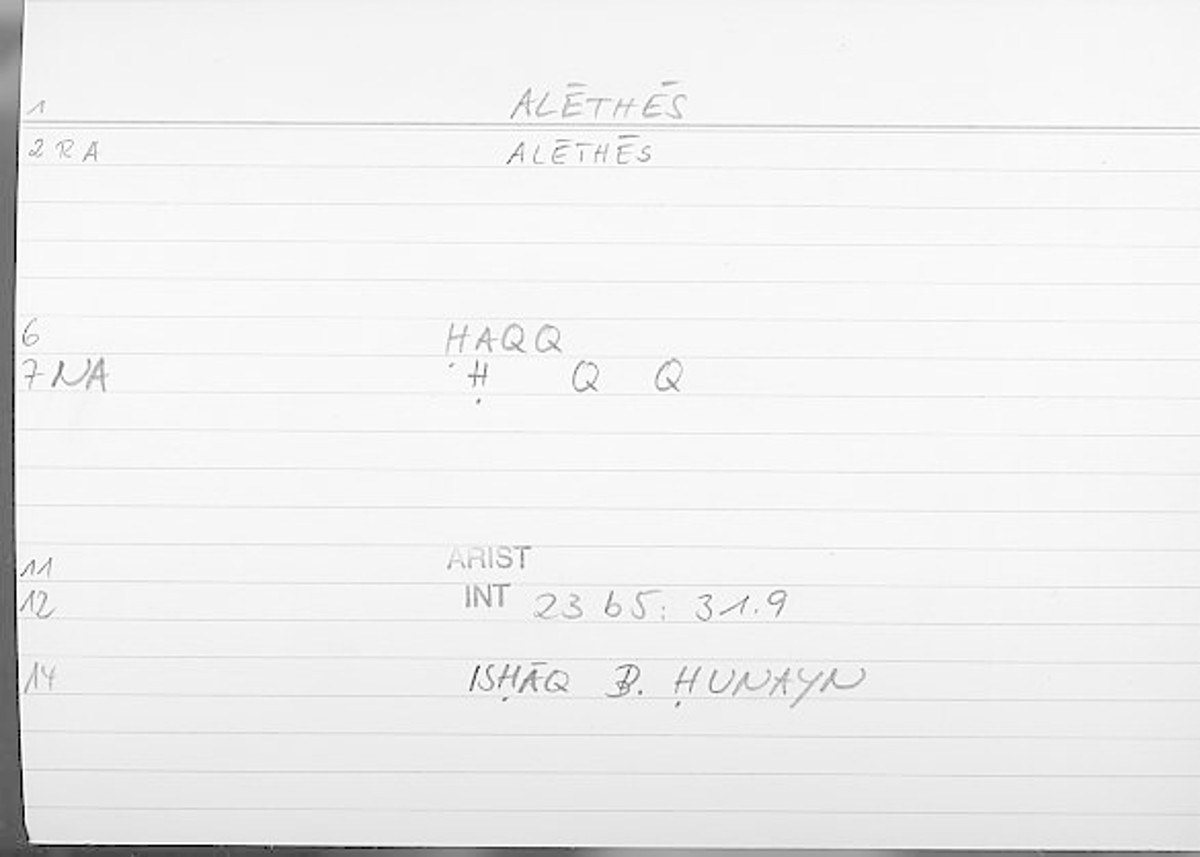 1 ALĒTHĒS
2 R A ALĒTHĒS
6 ḤAQQ
7 NA Ḥ Q Q
11 ARIST
12 INT 23 b5: 31.9
14 ISḤĀQ B. ḤUNAYN